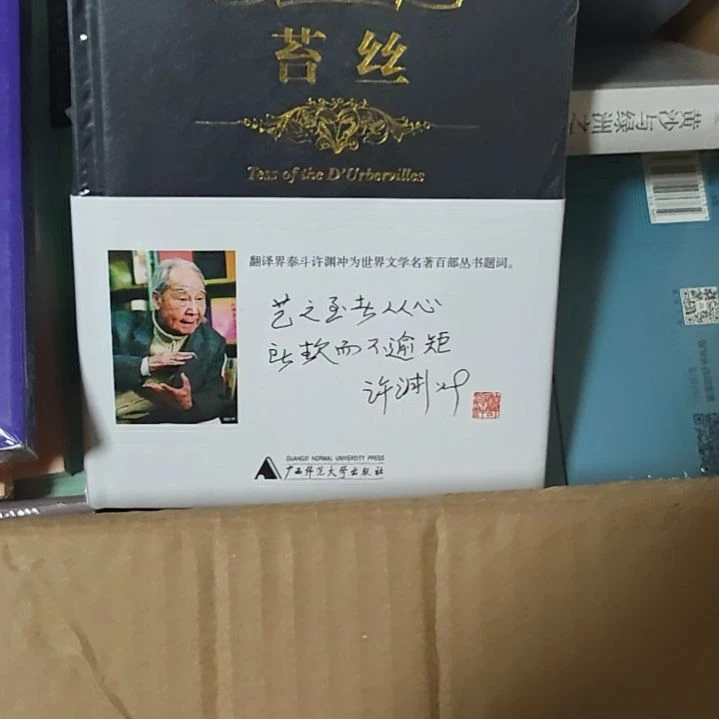 苔丝
Tess of the D'Urbervilles
翻译界泰斗许渊冲为世界文学名著百部丛书题词。
艺之至者从心
所欲而不逾矩
许渊冲
GUANGXI NORMAL UNIVERSITY PRESS
广西师范大学出版社
黄沙与绿洲之